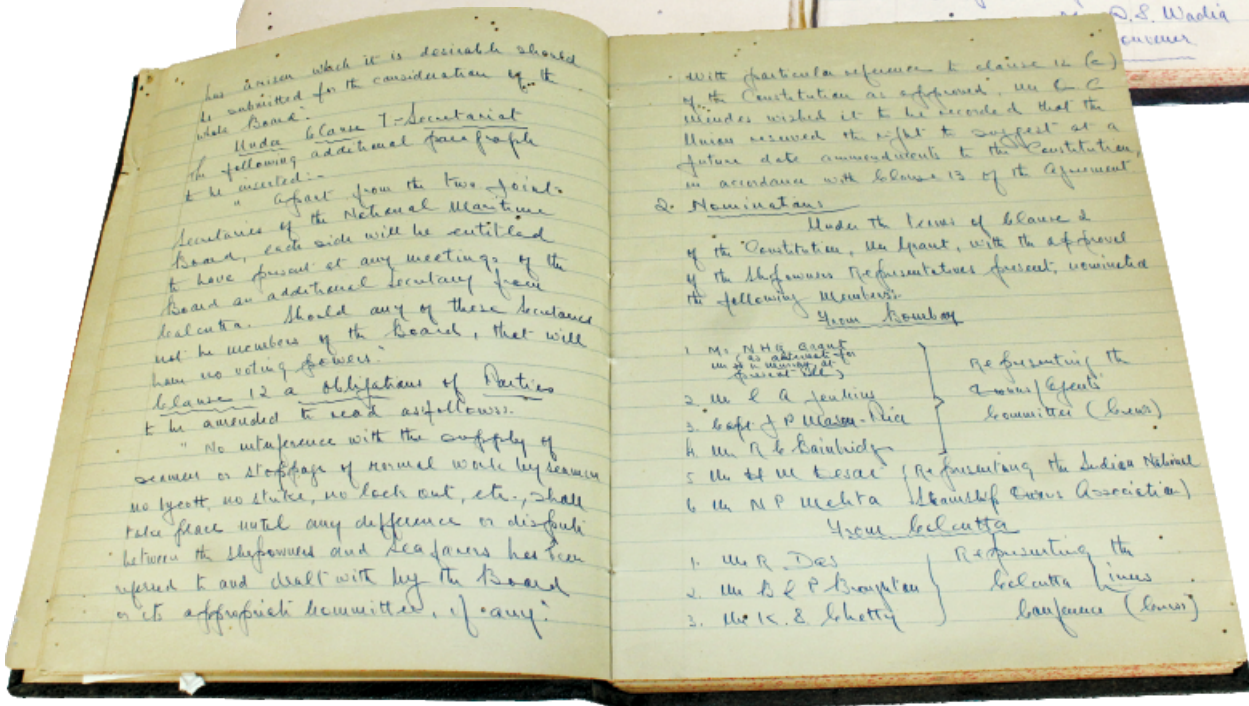 has arisen which it is desirable should
be submitted for the consideration of the
whole Board."
Under Clause 7 - Secretariat
The following additional paragraph
to be inserted:-
" Apart from the two Joint-
Secretaries of the National Maritime
Board, each side will be entitled
to have present at any meetings of the
Board an additional secretary from
Calcutta. Should any of these Secretaries
not be members of the Board, that will
have no voting powers."
Clause 12 a Obligations of Parties
to be amended to read as follows:-
" No interference with the supply of
seamen or stoppage of normal work by seamen
no boycott, no strike, no lock out, etc., shall
take place until any difference or dispute
between the Shipowners and Seafarers has been
referred to and dealt with by the Board
or its appropriate Committee, if any."
With particular reference to clause 12 (c)
of the Constitution as approved, Mr
Mendes wished it to be recorded that the
Union reserved the right to suggest at a
future date ammendments to the Constitution,
in accordance with Clause 13 of the Agreement
2. Nominations
Under the terms of Clause 2
of the Constitution, Mr Grant, with the approval
of the Shipowners Representatives present, nominated
the following Members:
From Bombay
1. Mr NHG Grant
(as alternate for
present)
2. Mr C A Jenkins
3. Capt J P Mason-Rice
4. Mr R C Bainbridge
Representing the
Liners/Agents
Committee (Crews)
5 Mr H M Desai (Representing the Indian National
6 Mr N P Mehta Steamship Owners Association)
From Calcutta
1. Mr R. Das
2. Mr B L P Broughton
3. Mr K. S Chetty
Representing the
Calcutta Liners
Conference (Crews)
D.S. Wadia
Convener